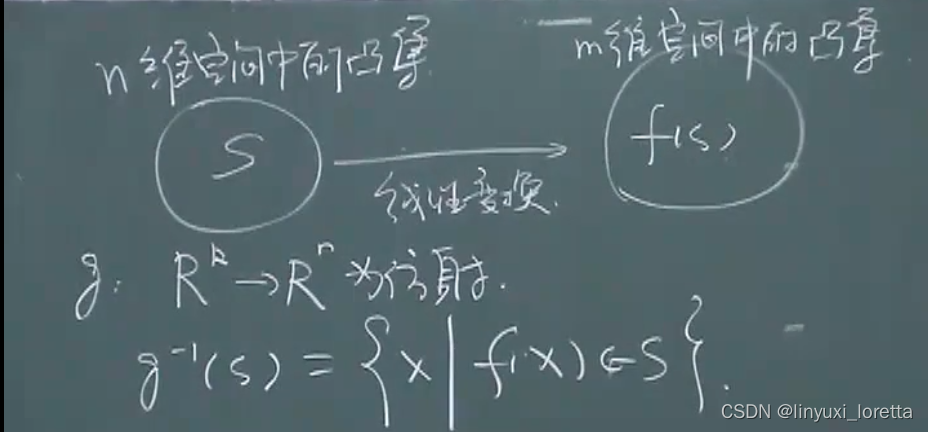 n维空间中的凸集
m维空间中的凸集.
S
f(s)
线性变换.
g: R^k→R^n 为仿射.
g^{-1}(s) = {x | f(x) ∈ S}.
CSDN @linyuxi_loretta